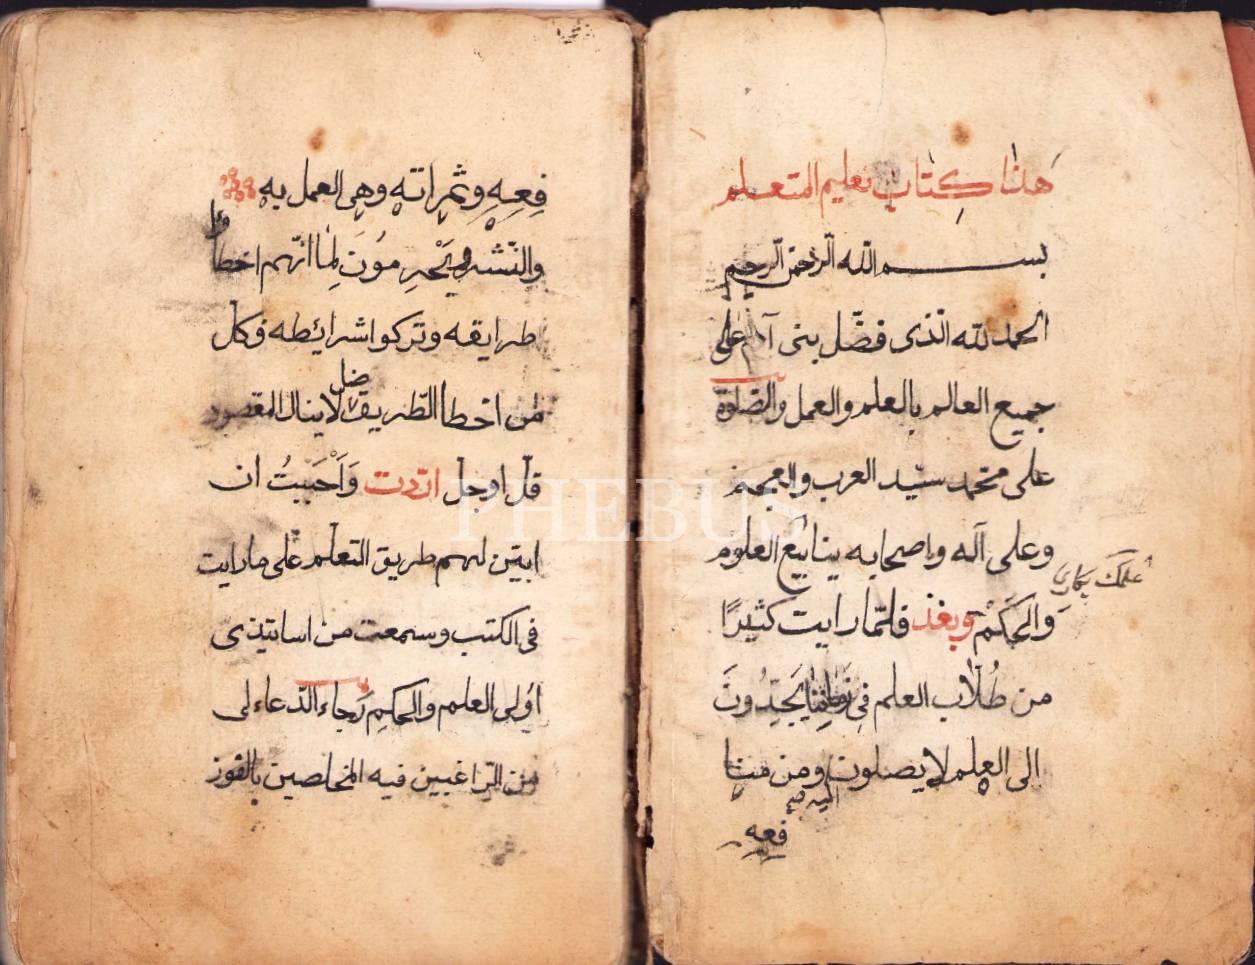 هذا كتاب تعليم المتعلم
بسم الله الرحمن الرحيم
الحمد لله الذى فضّل بنى آدم على
جميع العالم بالعلم والعمل والصّلوة
على محمد سيّد العرب والعجم
وعلى آله واصحابه ينابيع العلوم
وَالحِكَمْ وبعد فلمّا رايت كثيرًا
من طُلّاب العلم فى زماننا يَجِدُّونَ
الى العلم لا يصلون ومن منا
اليه صح
فعه
فِعِهِ وثمراته وهى العمل به
والنّشر يَحْرِمُونَ لِما انّهم اخطأوا
طرايقه وتركوا شرايطه وكل
من اخطا الطريق ضل لا ينال المقصود
قل او جل اردت وَاَحْبَبْتُ ان
ابيّن لهم طريق التعلم على ما رايت
فى الكتب وسمعت من اساتيذى
اولى العلم والحكم رجاء الدّعاء لى
من الرّاغبين فيه المخلصين بالفوز
PHEBUS